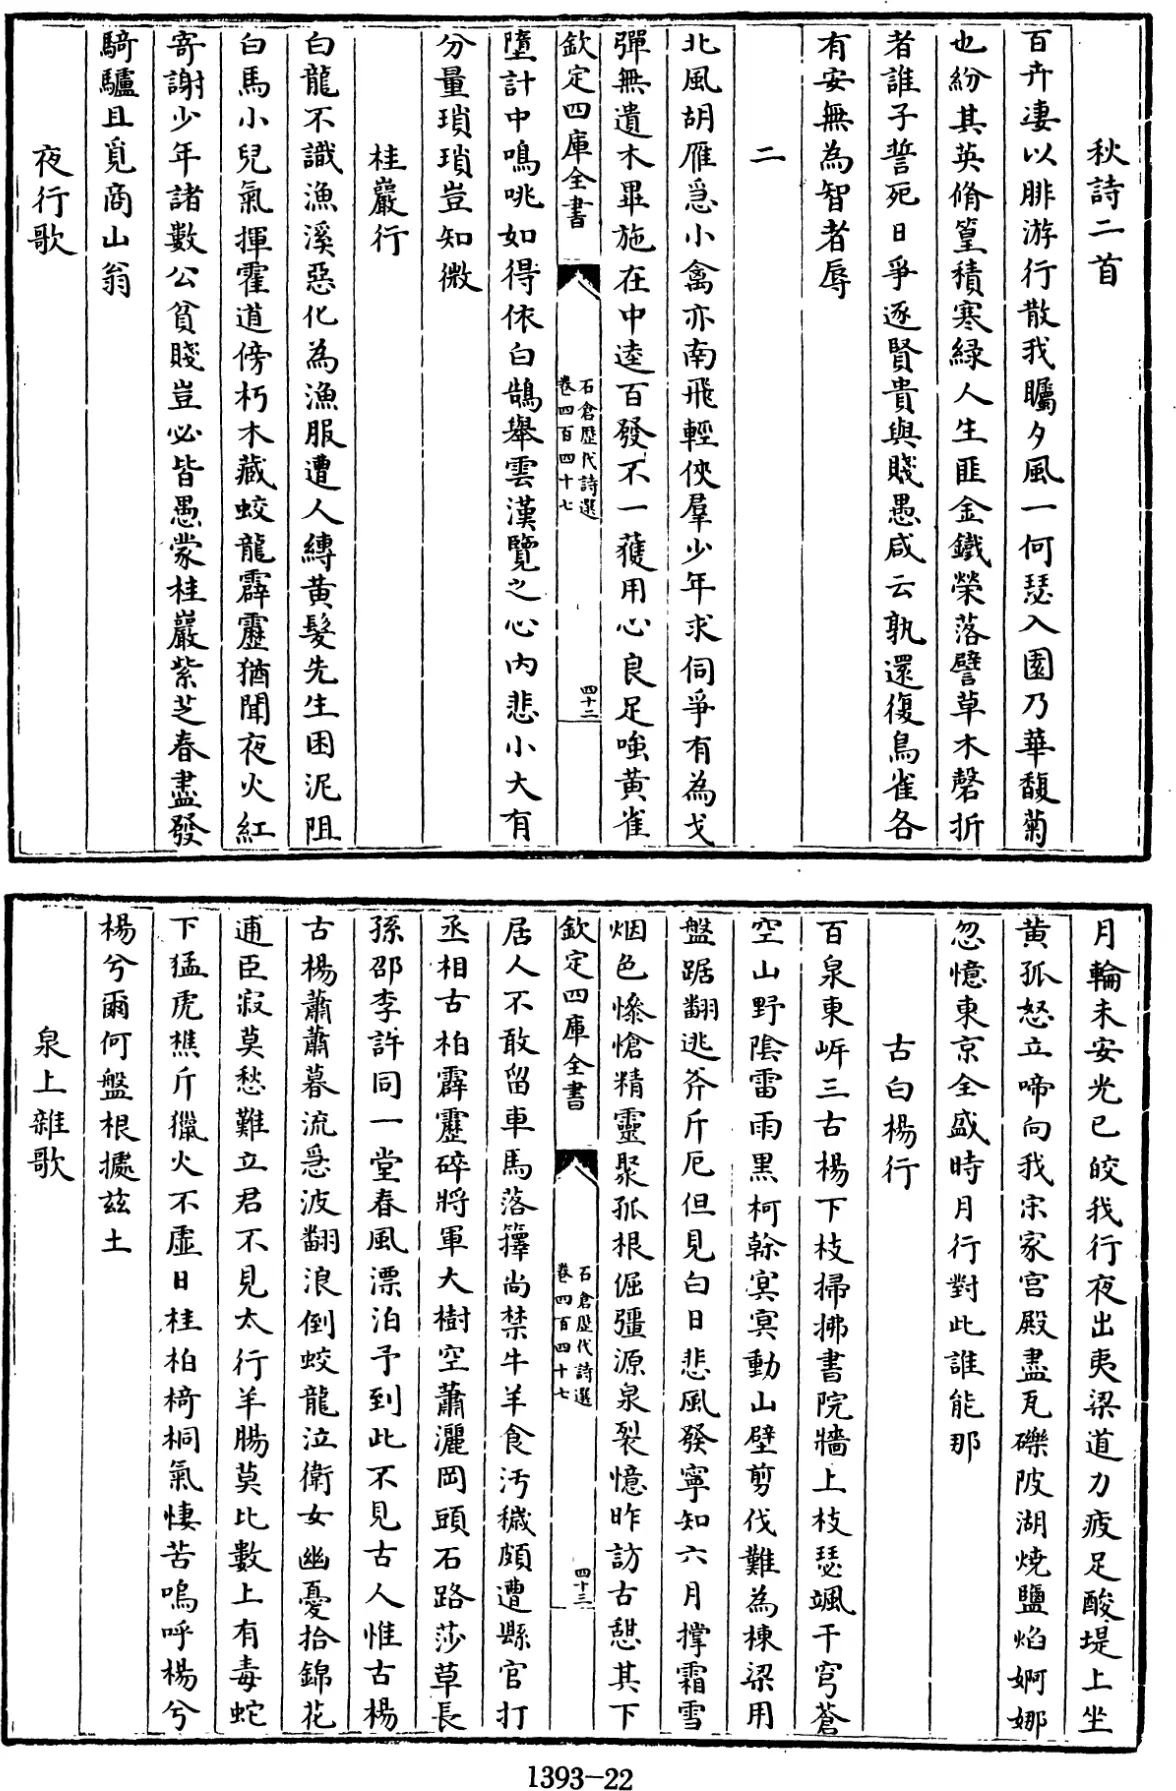 秋詩二首
百卉凄以腓游行散我矚夕風一何瑟入園乃華馥菊
也紛其英脩篁積寒綠人生匪金鐵榮落譬草木磬折
者誰子誓死日爭逐賢貴與賤愚咸云孰還復鳥雀各
有安無為智者辱
二
北風胡雁急小禽亦南飛輕俠羣少年求伺爭有為戈
彈無遺木畢施在中逵百發不一獲用心良足嗤黃雀
欽定四庫全書
石倉歷代詩選
卷四百四十七
四十二
墮計中鳴咷如得依白鵠舉雲漢覽之心內悲小大有
分量瑣瑣豈知微
桂巖行
白龍不識漁溪惡化為漁服遭人縛黃髮先生困泥阻
白馬小兒氣揮霍道傍朽木藏蛟龍霹靂猶聞夜火紅
寄謝少年諸數公貧賤豈必皆愚蒙桂巖紫芝春盡發
騎驢且覓商山翁
夜行歌
月輪未安光已皎我行夜出夷梁道力疲足酸堤上坐
黃狐怒立啼向我宋家宮殿盡瓦礫陂湖燒鹽焰婀娜
忽憶東京全盛時月行對此誰能那
古白楊行
百泉東岍三古楊下枝掃拂書院牆上枝瑟颯干穹蒼
空山野陰雷雨黑柯榦冥冥動山壁剪伐難為棟梁用
盤踞翻逃斧斤厄但見白日悲風發寧知六月撐霜雪
烟色慘愴精靈聚孤根倔彊源泉裂憶昨訪古憇其下
欽定四庫全書
石倉歷代詩選
卷四百四十七
四十三
居人不敢留車馬落籜尚禁牛羊食汚穢頗遭縣官打
丞相古柏霹靂碎將軍大樹空蕭灑岡頭石路莎草長
孫邵李許同一堂春風漂泊予到此不見古人惟古楊
古楊蕭蕭暮流急波翻浪倒蛟龍泣衛女幽憂拾錦花
逋臣寂莫愁難立君不見太行羊腸莫比數上有毒蛇
下猛虎樵斤獵火不虛日桂柏椅桐氣悽苦嗚呼楊兮
楊兮爾何盤根據茲土
泉上雜歌
1393—22